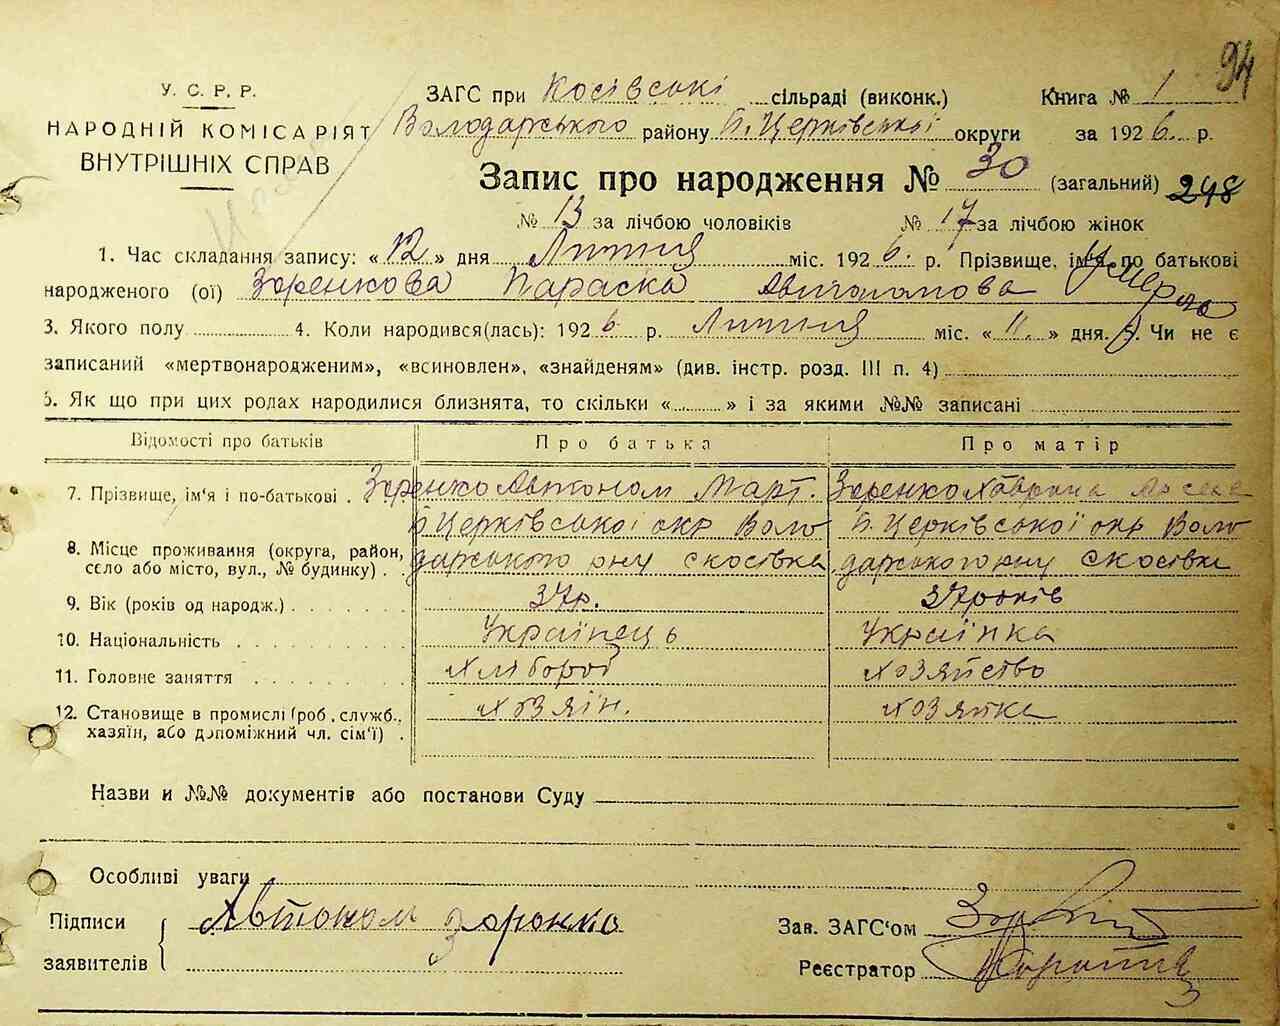 94
У. С. Р. Р.
НАРОДНІЙ КОМІСАРІЯТ
ВНУТРІШНІХ СПРАВ
ЗАГС при Косівські сільраді (виконк.) Книга № 1
Володарського району Б. Церківської округи за 1926 р.
Запис про народження № 30 (загальний) 248
№ 13 за лічбою чоловіків № 17 за лічбою жінок
1. Час складання запису: «12» дня Липня міс. 1926. р. Прізвище, ім'я по батькові
народженого (ої) Зоренкова Параска Автономова Умерла
3. Якого полу 4. Коли народився(лась): 1926 р. Липня міс. «11.» дня. 5. Чи не є
записаний «мертвонародженим», «всиновлен», «знайденям» (див. інстр. розд. III п. 4)
6. Як що при цих родах народилися близнята, то скільки « » і за якими №№ записані
Відомості про батьків Про батька Про матір
7. Прізвище, ім'я і по-батькові . Зоренко Автоном Март. Зоренко
Б. Церківської окр Воло Б. Церківської окр Воло
8. Місце проживання (округа, район, дарського рну с Косівка дарського рну с Косівка
село або місто, вул., № будинку) .
9. Вік (років од народж.) 37р. 37 років
10. Національність Українець Українка
11. Головне заняття Хлібороб хозяйство
12. Становище в промислі (роб., служб., хозяін. хозяйка
хазяїн, або допоміжний чл. сім'ї) .
Назви и №№ документів або постанови Суду
Особливі уваги
Підписи Автоном Зоренко Зав. ЗАГС'ом
заявителів Реєстратор